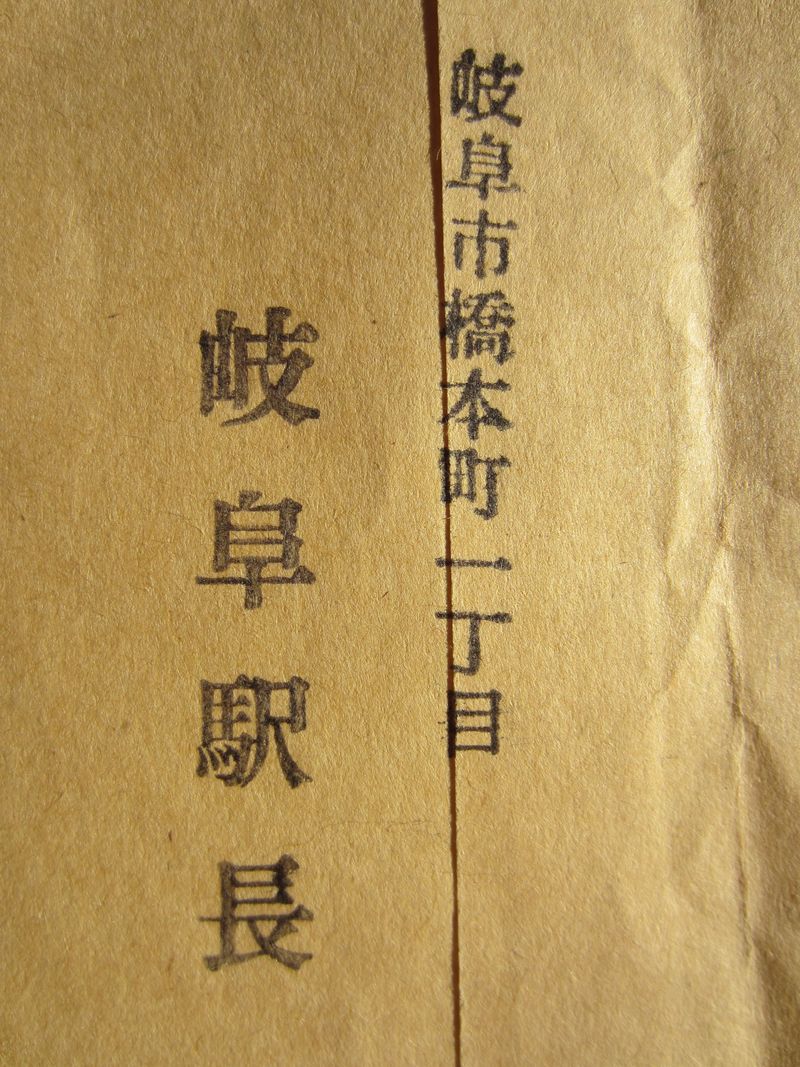 岐阜市橋本町一丁目
岐阜駅長